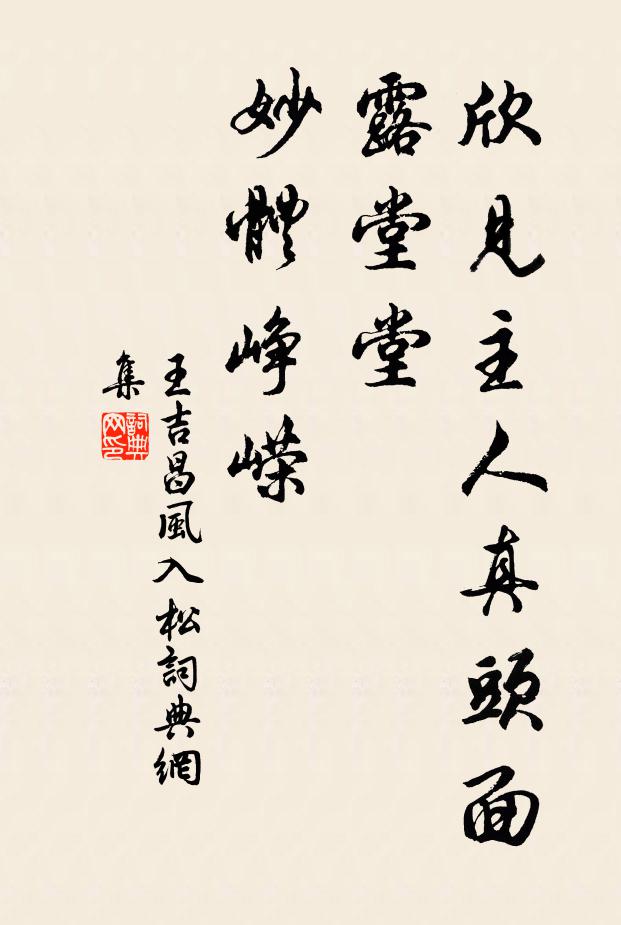 欣見主人真頭面
露堂堂
妙體崢嶸
王吉昌風入松詞典網
集
詞典
网印